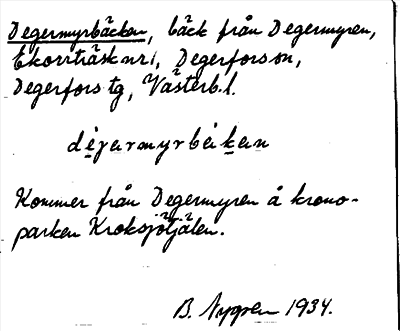 Degermyrbäcken, bäck från Degermyren,
Ekorrträsk nr 1, Degerfors sn,
Degerfors tg, Västerb. l.
Kommer från Degermyren å krono-
parken Kroksjötjälen.
B. Nygren 1934.